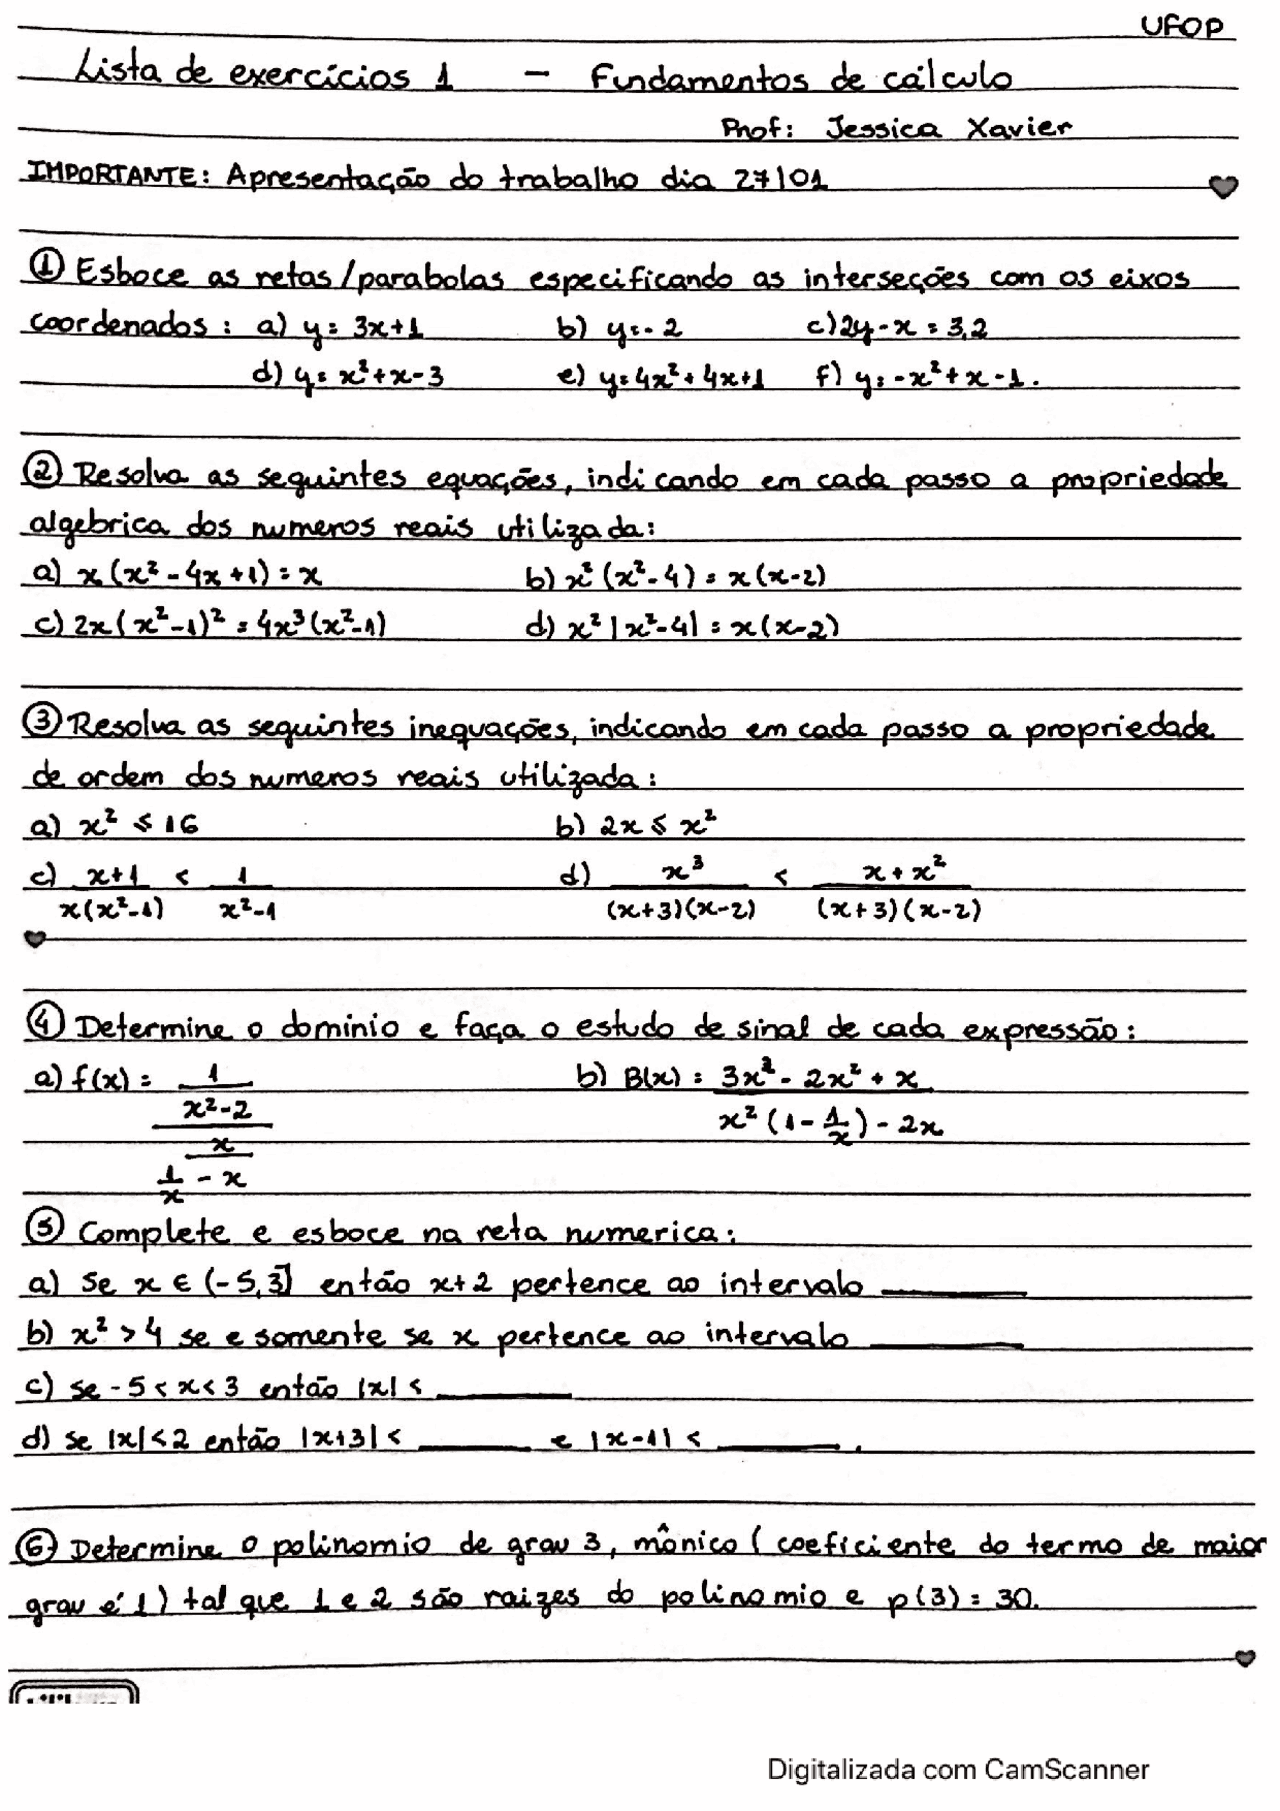 UFOP
Lista de exercícios 1 - Fundamentos de cálculo
Prof: Jessica Xavier
IMPORTANTE: Apresentação do trabalho dia 27/01
① Esboce as retas/parabolas especificando as interseções com os eixos
coordenados: a) y = 3x+1 b) y = -2 c) 2y - x = 3,2
d) y = x² + x - 3 e) y = 4x² + 4x + 1 f) y = -x² + x - 1.
② Resolva as seguintes equações, indicando em cada passo a propriedade
algebrica dos numeros reais utilizada:
a) x(x² - 4x + 1) = x b) x²(x² - 4) = x(x-2)
c) 2x(x²-1)² = 4x³(x²-1) d) x²|x²-4| = x(x-2)
③ Resolva as seguintes inequações, indicando em cada passo a propriedade
de ordem dos numeros reais utilizada:
a) x² ≤ 16 b) 2x ≤ x²
c) x+1 < 1 d) x³ < x + x²
x(x²-1) x²-1 (x+3)(x-2) (x+3)(x-2)
④ Determine o dominio e faça o estudo de sinal de cada expressão:
a) f(x) = 1 b) B(x) = 3x³ - 2x² + x
x²-2 x²(1 - 1/x) - 2x
x
1/x - x
⑤ Complete e esboce na reta numerica:
a) Se x ∈ (-5,3] então x+2 pertence ao intervalo ______
b) x² > 4 se e somente se x pertence ao intervalo ______
c) se -5 < x < 3 então |x| < ______
d) se |x| < 2 então |x+3| < ______ e |x-1| < ______.
⑥ Determine o polinomio de grau 3, mônico (coeficiente do termo de maior
grau é 1) tal que 1 e 2 são raizes do polinomio e p(3) = 30.
Digitalizada com CamScanner